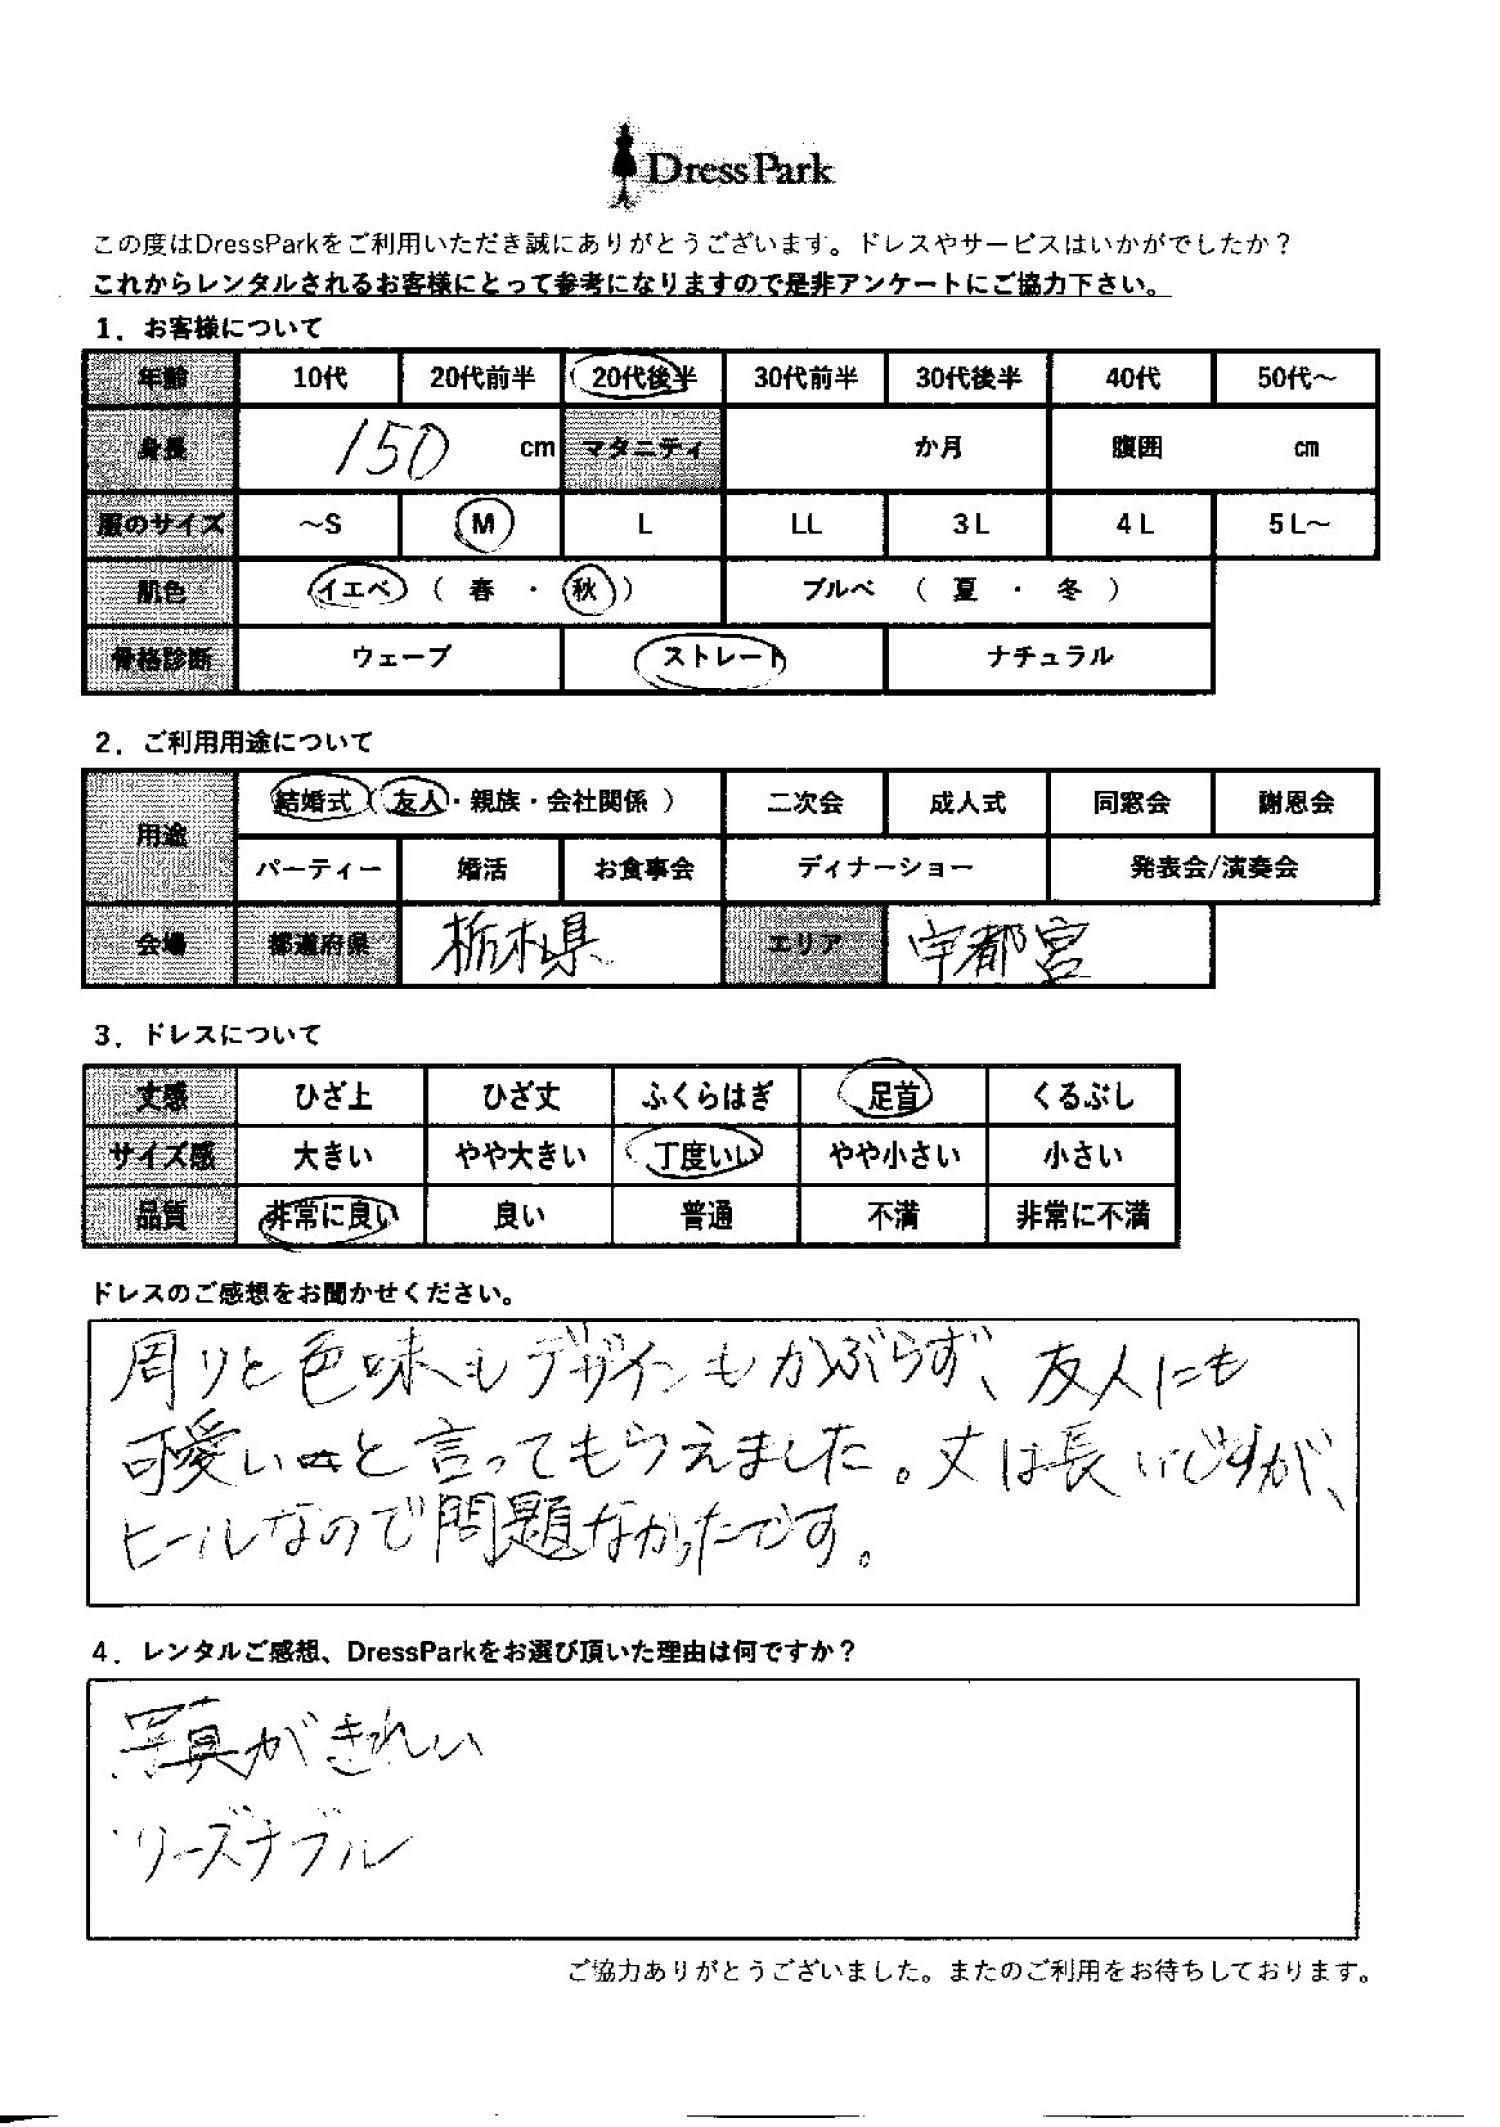 DressPark
この度はDressParkをご利用いただき誠にありがとうございます。ドレスやサービスはいかがでしたか？
これからレンタルされるお客様にとって参考になりますので是非アンケートにご協力下さい。
1．お客様について
年齢 10代 20代前半 20代後半 30代前半 30代後半 40代 50代～
身長 150 cm マタニティ か月 腹囲 cm
服のサイズ ～S M L LL 3L 4L 5L～
肌色 イエベ （ 春 ・ 秋 ） ブルベ （ 夏 ・ 冬 ）
骨格診断 ウェーブ ストレート ナチュラル
2．ご利用用途について
用途 結婚式（ 友人・親族・会社関係 ） 二次会 成人式 同窓会 謝恩会
パーティー 婚活 お食事会 ディナーショー 発表会/演奏会
会場 都道府県 栃木県 エリア 宇都宮
3．ドレスについて
丈感 ひざ上 ひざ丈 ふくらはぎ 足首 くるぶし
サイズ感 大きい やや大きい 丁度いい やや小さい 小さい
品質 非常に良い 良い 普通 不満 非常に不満
ドレスのご感想をお聞かせください。
周りと色味もデザインもかぶらず、友人にも
可愛いと言ってもらえました。丈は長いですが、
ヒールなので問題なかったです。
4．レンタルご感想、DressParkをお選び頂いた理由は何ですか？
写真がきれい
リーズナブル
ご協力ありがとうございました。またのご利用をお待ちしております。